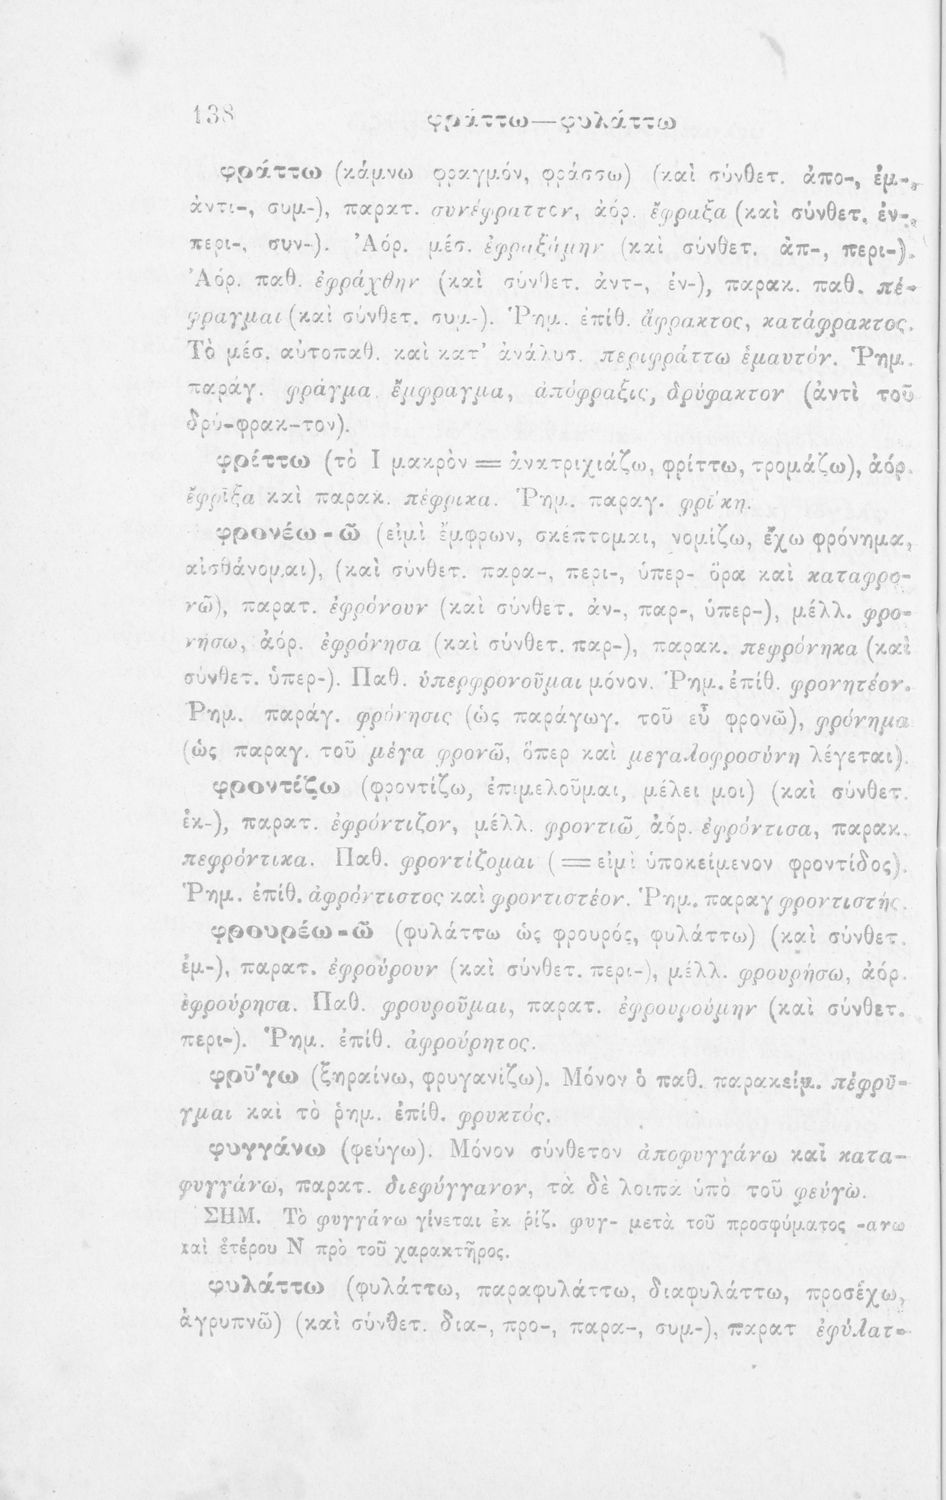 138
φράττω—φυλάττω
φράττω (κάμνω φραγμόν, φράσσω) (καὶ σύνθετ. ἀπο-, ἐμ-,
ἀντι-, συμ-), παρατ. συνέφραττον, ἀόρ. ἔφραξα (καὶ σύνθετ. ἐν-,
περι-, συν-). Ἀόρ. μέσ. ἐφραξάμην (καὶ σύνθετ. ἀπ-, περι-).
Ἀόρ. παθ. ἐφράχθην (καὶ σύνθετ. ἀντ-, ἐν-), παρακ. παθ. πέ-
φραγμαι (καὶ σύνθετ. συμ-). Ῥημ. ἐπίθ. ἄφρακτος, κατάφρακτος.
Τὸ μέσ. αὐτοπαθ. καὶ κατ’ ἀνάλυσ. περιφράττω ἐμαυτόν. Ῥημ.
παράγ. φράγμα ἔμφραγμα, ἀπόφραξις, δρύφακτον (ἀντὶ τοῦ
δρύ-φρακ-τον).
φρίττω (τὸ Ι μακρὸν = ἀνατριχιάζω, φρίττω, τρομάζω), ἀόρ.
ἔφριξα καὶ παρακ. πέφρικα. Ῥημ. παραγ. φρί̄κη.
φρονέω-ῶ (εἰμὶ ἔμφρων, σκέπτομαι, νομίζω, ἔχω φρόνημα,
αἰσθάνομαι), (καὶ σύνθετ. παρα-, περι-, ὑπερ- ὅρα καὶ καταφρο-
νῶ), παρατ. ἐφρόνουν (καὶ σύνθετ. ἀν-, παρ-, ὑπερ-), μέλλ. φρο-
νήσω, ἀόρ. ἐφρόνησα (καὶ σύνθετ. παρ-), παρακ. πεφρόνηκα (καὶ
σύνθετ. ὑπερ-). Παθ. ὑπερφρονοῦμαι μόνον. Ῥημ. ἐπίθ. φρονητέον.
Ῥημ. παράγ. φρόνησις (ὡς παράγωγ. τοῦ εὖ φρονῶ), φρόνημα
(ὡς παραγ. τοῦ μέγα φρονῶ, ὅπερ καὶ μεγαλοφροσύνη λέγεται).
φροντίζω (φροντίζω, ἐπιμελοῦμαι, μέλει μοι) (καὶ σύνθετ.
ἐκ-), παρατ. ἐφρόντιζον, μέλλ. φροντιῶ, ἀόρ. ἐφρόντισα, παρακ.
πεφρόντικα. Παθ. φροντίζομαι (=εἰμὶ ὑποκείμενον φροντίδος).
Ῥημ. ἐπίθ. ἀφρόντιστος καὶ φροντιστέον. Ῥημ. παραγ φροντιστής.
φρουρέω-ῶ (φυλάττω ὡς φρουρός, φυλάττω) (καὶ σύνθετ.
ἐμ-), παρατ. ἐφρούρουν (καὶ σύνθετ. περι-), μέλλ. φρουρήσω, ἀόρ.
ἐφρούρησα. Παθ. φρουροῦμαι, παρατ. ἐφρουρούμην (καὶ σύνθετ.
περι-). Ῥημ. ἐπίθ. ἀφρούρητος.
φρύ̄γω (ξηραίνω, φρυγανίζω). Μόνον ὁ παθ. παρακείμ. πέφρῡ-
γμαι καὶ τὸ ῥημ. ἐπίθ. φρυκτός.
φυγγάνω (φεύγω). Μόνον σύνθετον ἀποφυγγάνω καὶ κατα-
φυγγάνω, παρατ. διεφύγγανον, τὰ δὲ λοιπὰ ὑπὸ τοῦ φεύγω.
ΣΗΜ. Τὸ φυγγάνω γίνεται ἐκ ῥίζ. φυγ- μετὰ τοῦ προσφύματος -ανω
καὶ ἑτέρου Ν πρὸ τοῦ χαρακτῆρος.
φυλάττω (φυλάττω, παραφυλάττω, διαφυλάττω, προσέχω,
ἀγρυπνῶ) (καὶ σύνθετ. δια-, προ-, παρα-, συμ-), παρατ ἐφύλατ-